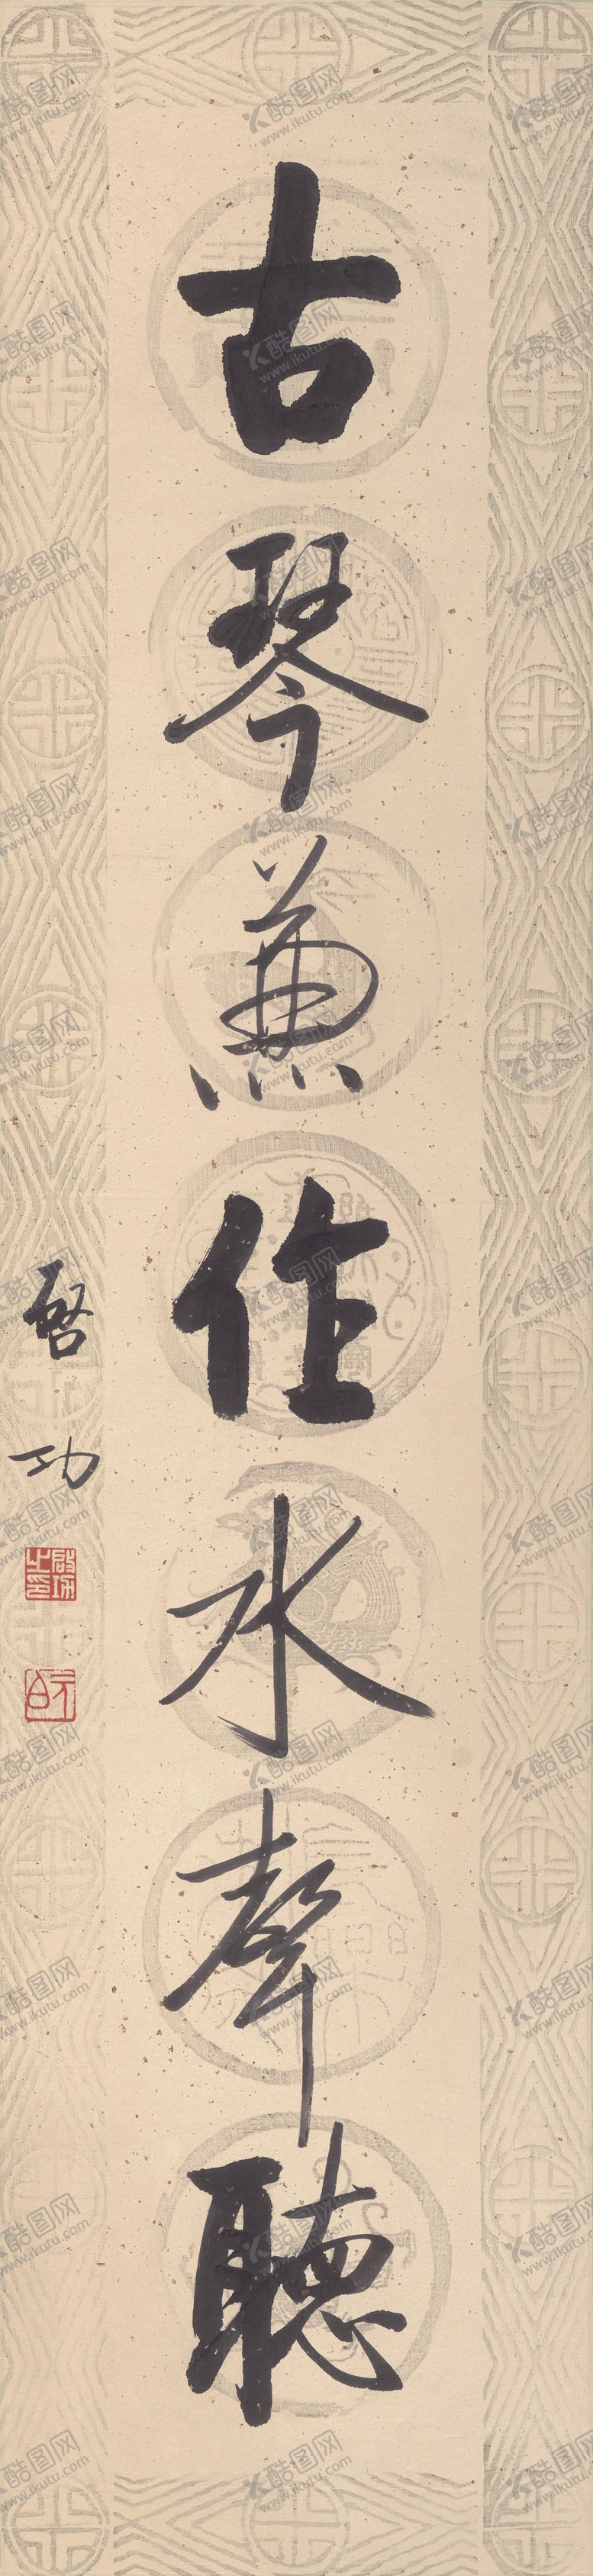 古琴兼作水聲聽
啓功
啟功之印
酷图网
www.ikutu.com